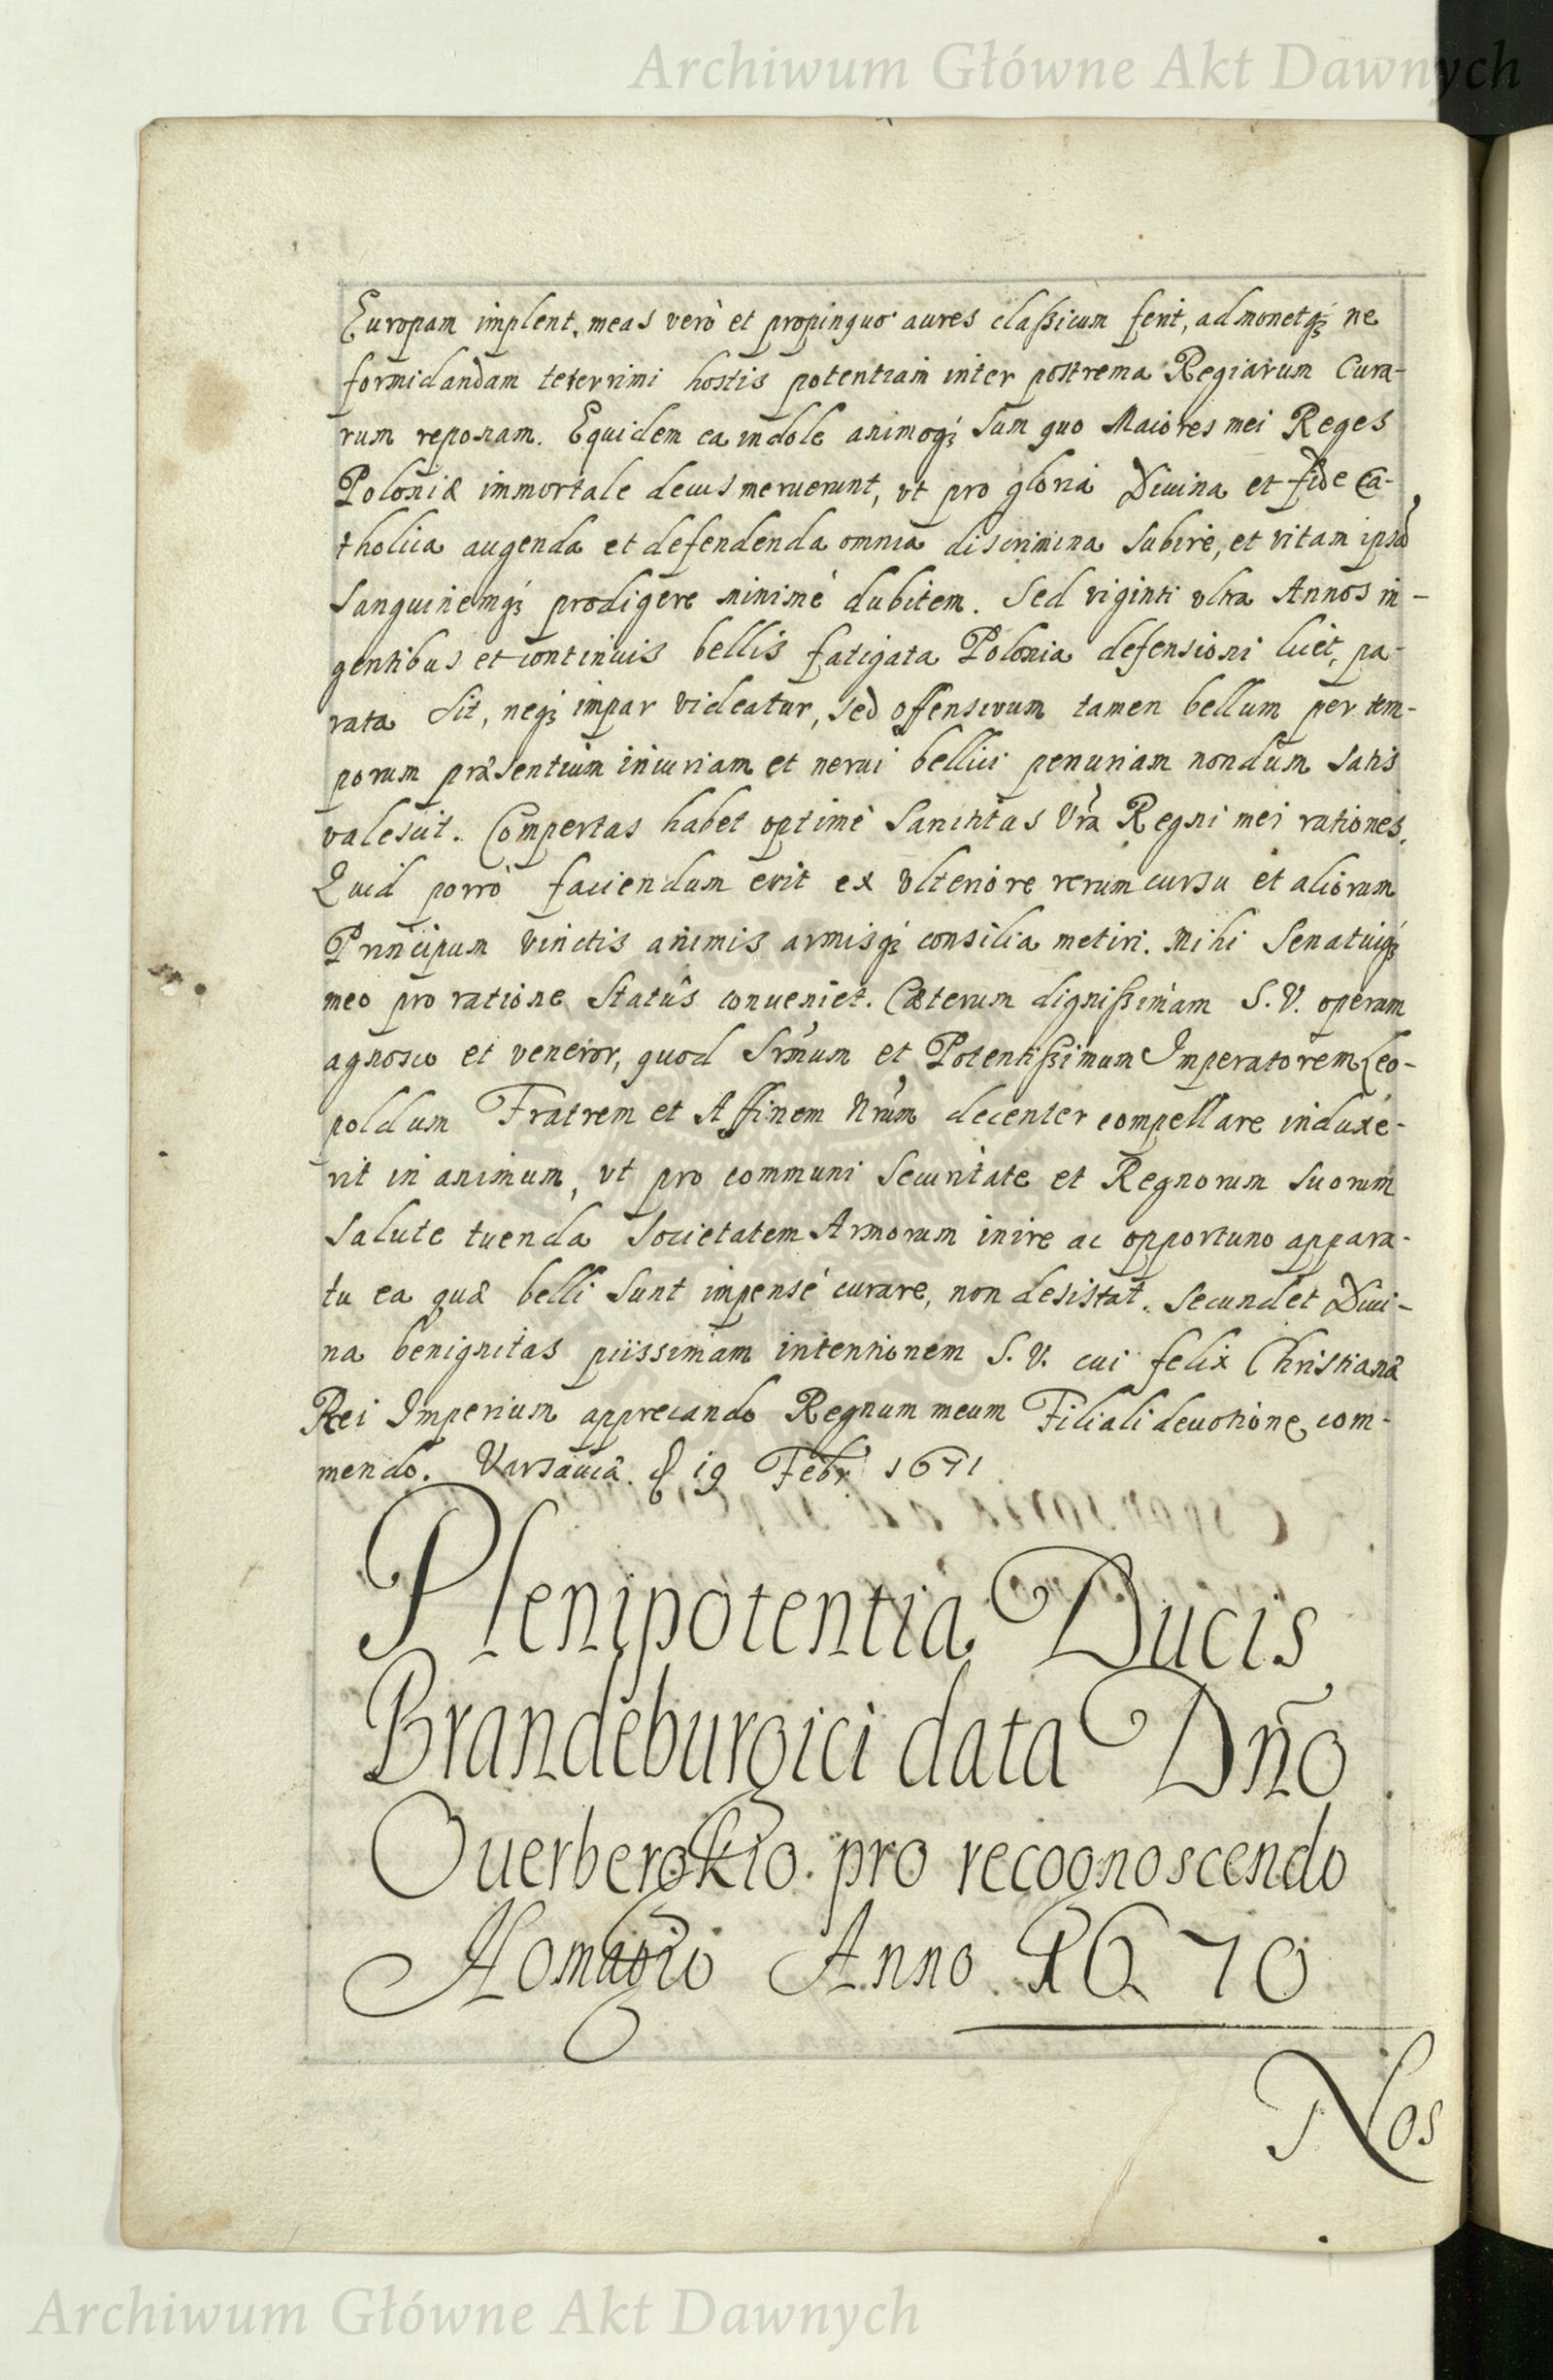 Archiwum Główne Akt Dawnych
Europam implent, meas verò et propinquo aures claßicum ferit, admonetqꝫ ne
formidandam teterrimi hostis potentiam inter postrema Regiarum Cura-
rum reponam. Equidem ea indole animoqꝫ sum quo Maiores mei Reges
Poloniæ immortale decus meruerunt, vt pro gloria Diuina et fide Ca-
tholica augenda et defendenda omnia discrimina subire, et vitam ipsã
sanguinemqꝫ prodigere minimè dubitem. Sed viginti vltra Annos in-
gentibus et continuis bellis fatigata Polonia defensioni licet, pa-
rata sit, neqꝫ impar videatur, sed offensivum tamen bellum per tem-
porum præsentium iniuriam et nerui bellici penuriam nondum satis
valescit. Compertas habet optimè Sanctitas Vrã Regni mei rationes,
Quid porrò faciendum erit ex vlteriore rerum cursu et aliorum
Principum vinctis animis armisqꝫ consilia metiri. Mihi Senatuiqꝫ
meo pro ratione Statûs conueniet. Cæterum dignißimam S. V. operam
agnosco et veneror, quod Srm̃um et Potentißimum Imperatorem Leo-
poldum Fratrem et Affinem Nrũm decenter compellare induxe-
rit in animum, vt pro communi securitate et Regnorum suorum
salute tuenda societatem Armorum inire ac opportuno appara-
tu ea quæ belli sunt impensè curare, non desistat. Secundet Diui-
na benignitas piissimam intentionem S. V. cui felix Christianæ
Rei Imperium apprecando Regnum meum Filiali deuotione com-
mendo. Varsauiæ. d 19 Febr 1671
Plenipotentia Ducis
Brandeburgici data Dño
Ouerbergkio pro recognoscendo
Homagio Anno 1670
Nos
Archiwum Główne Akt Dawnych